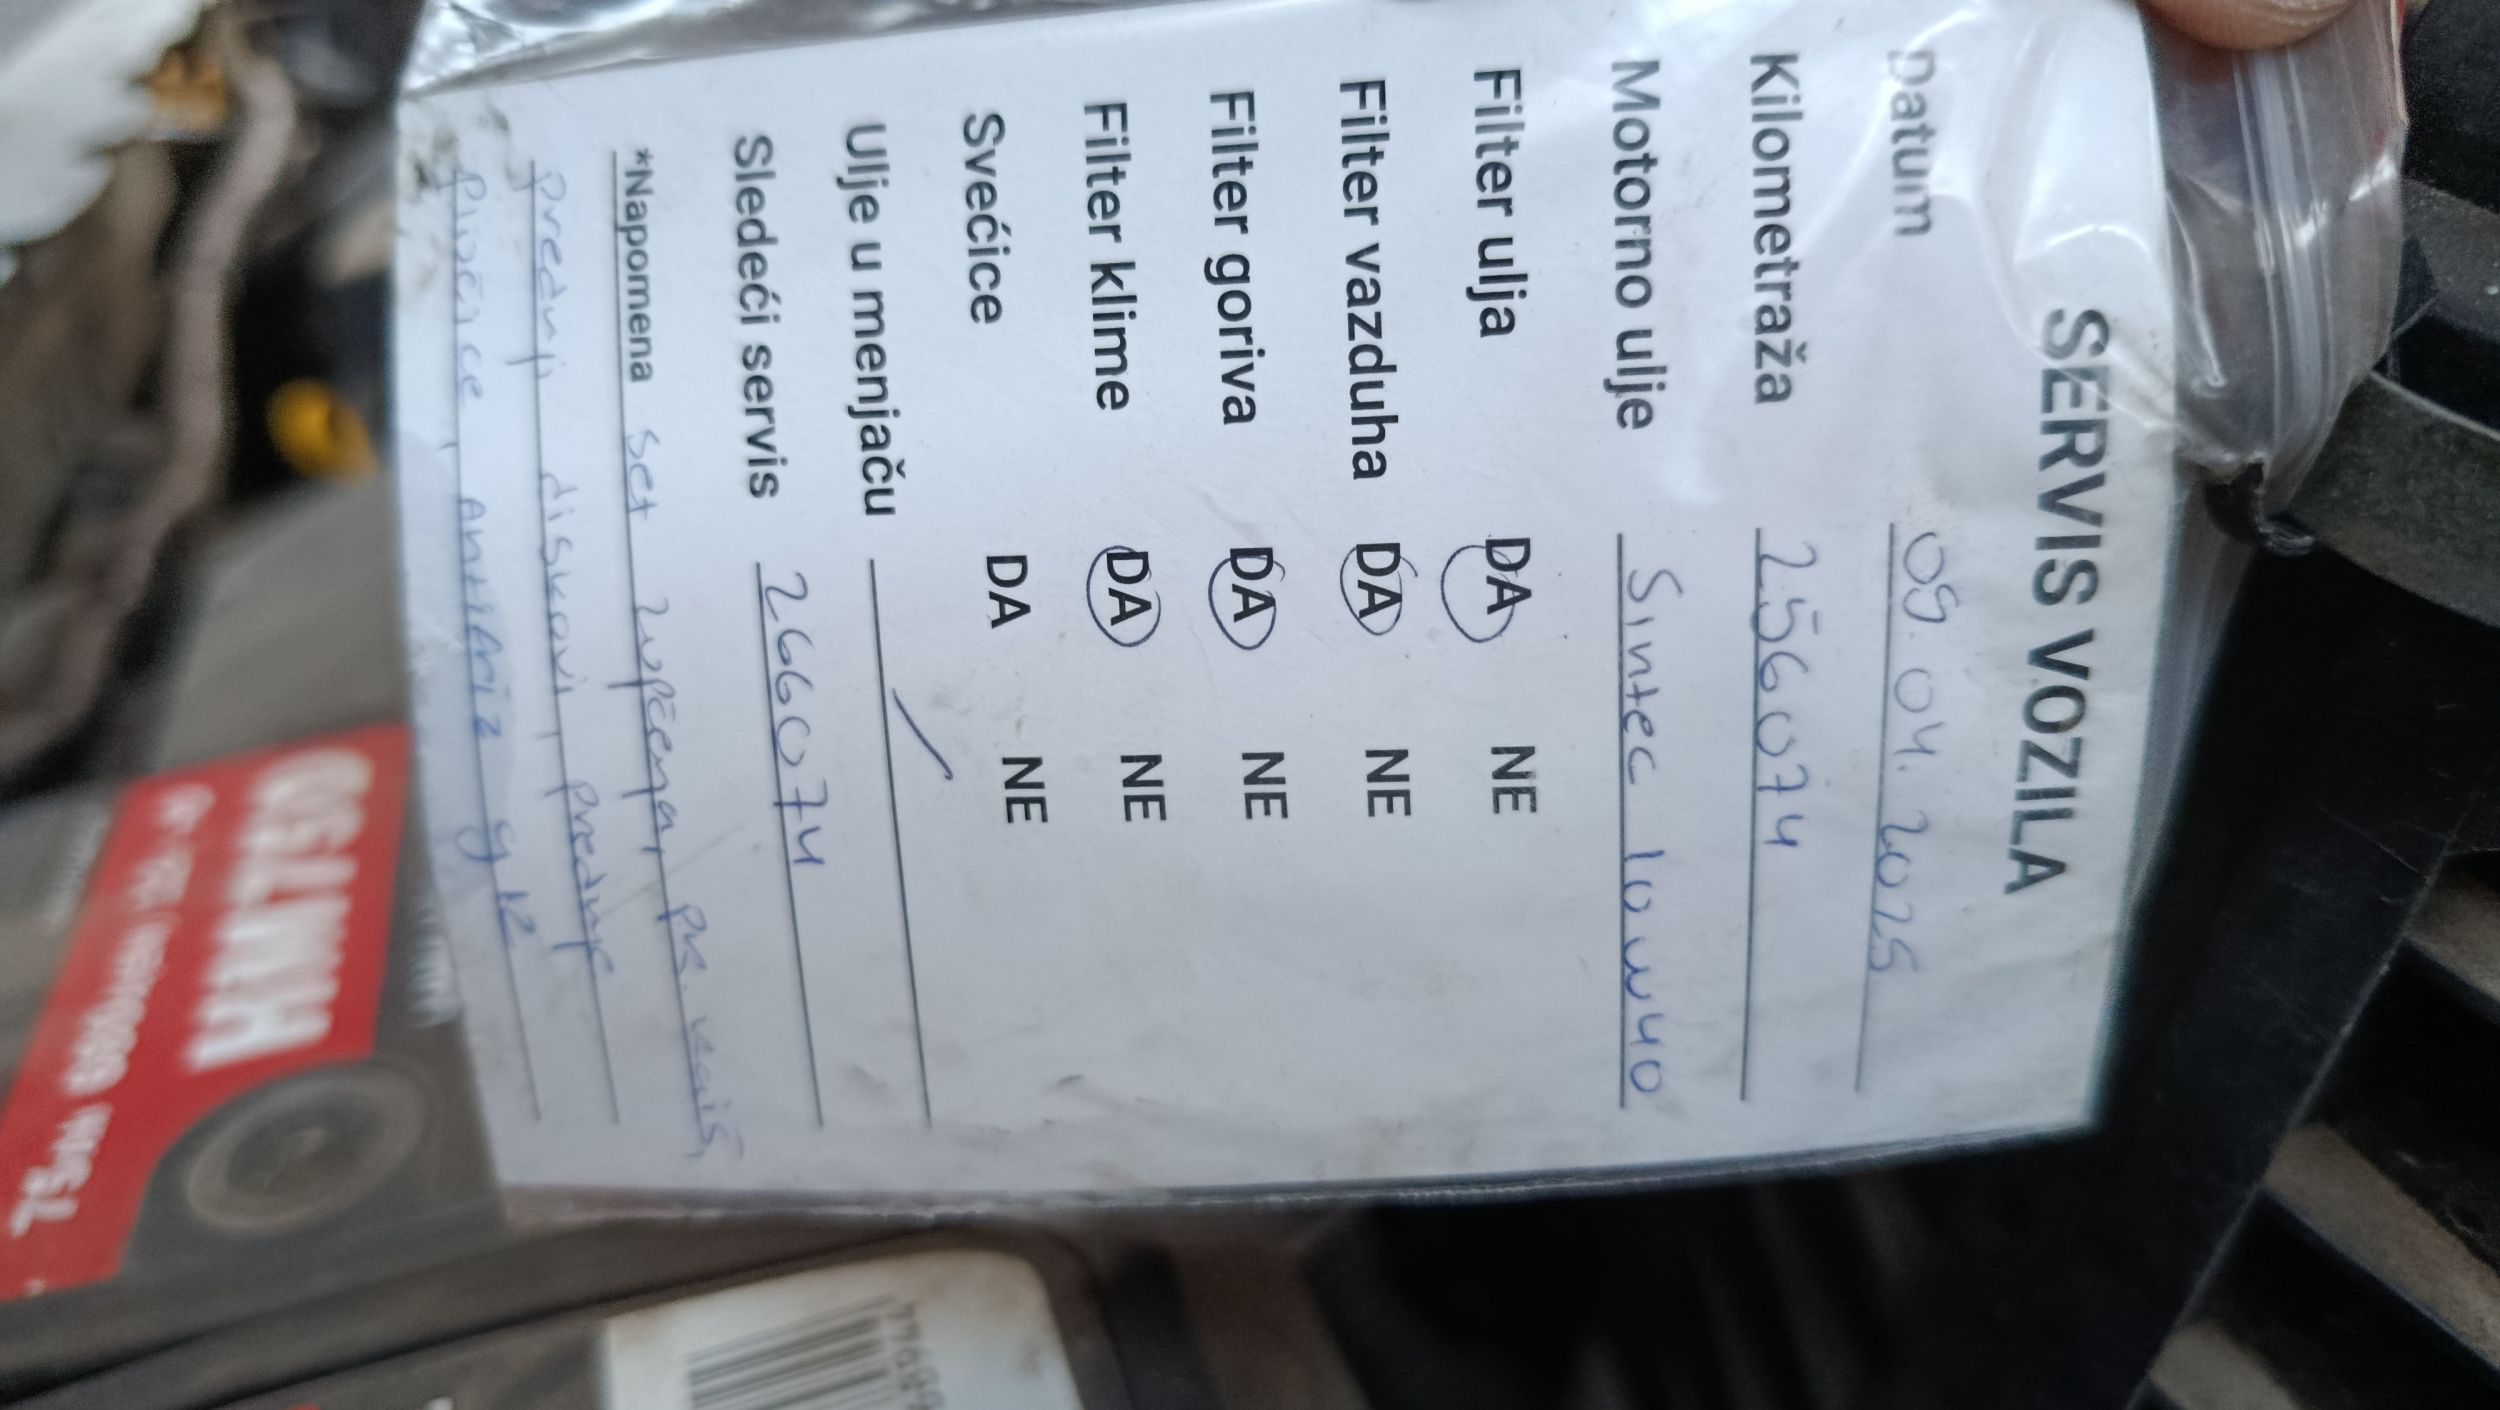 SERVIS VOZILA
Datum 09.04.2025
Kilometraža 256074
Motorno ulje Sintec 10w40
Filter ulja DA NE
Filter vazduha DA NE
Filter goriva DA NE
Filter klime DA NE
Svećice DA NE
Ulje u menjaču /
Sledeći servis 266074
*Napomena set zupčenja, pk. kaiš,
prednji diskovi, prednje
pločice, antifriz g12